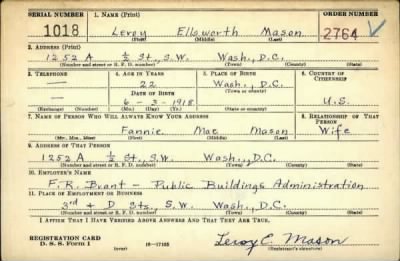 SERIAL NUMBER 1. NAME (Print) ORDER NUMBER
1018 Leroy Ellsworth Mason 2764
(First) (Middle) (Last)
2. ADDRESS (Print)
1252 A ½ St., S.W. Wash., D.C.
(Number and street or R. F. D. number) (Town) (County) (State)
3. TELEPHONE 4. AGE IN YEARS 5. PLACE OF BIRTH 6. COUNTRY OF CITIZENSHIP
— 22 Wash., D.C.
DATE OF BIRTH (Town or county)
— 6-3-1918 U.S.
(Exchange) (Number) (Mo.) (Day) (Yr.) (State or country)
7. NAME OF PERSON WHO WILL ALWAYS KNOW YOUR ADDRESS 8. RELATIONSHIP OF THAT PERSON
Fannie Mae Mason Wife
(Mr., Mrs., Miss) (First) (Middle) (Last)
9. ADDRESS OF THAT PERSON
1252 A ½ St., S.W. Wash., D.C.
(Number and street or R. F. D. number) (Town) (County) (State)
10. EMPLOYER'S NAME
F. R. Brant - Public Buildings Administration
11. PLACE OF EMPLOYMENT OR BUSINESS
3rd + D Sts., S.W. Wash., D.C.
(Number and street or R. F. D. number) (Town) (County) (State)
I AFFIRM THAT I HAVE VERIFIED ABOVE ANSWERS AND THAT THEY ARE TRUE.
REGISTRATION CARD
D. S. S. Form 1 (over) 16—17105 Leroy E. Mason
(Registrant's signature)